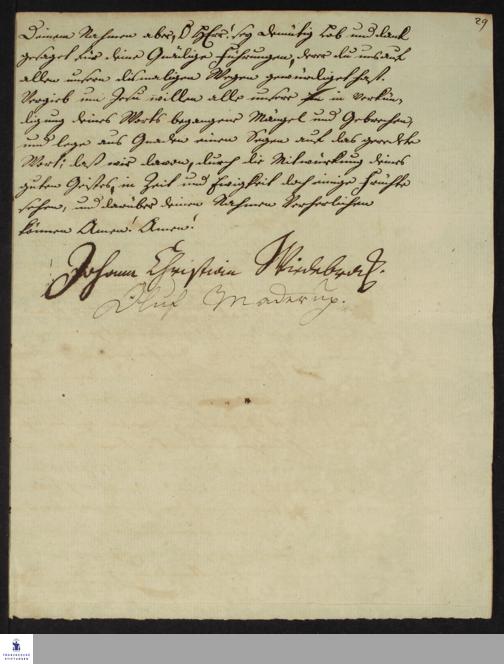 29
Deinem Nahmen aber, O HErr! sey demütig Lob und Dank
gesaget für deine Gnädige Führungen, derer du uns auf
allen unsern dismaligen Wegen gewürdiget hast.
Vergieb um Jesu willen alle unsere in Verkün-
digung deines Worts begangene Mängel und Gebrechen,
und lege aus Gnaden einen Segen auf das geredete
Wort; daß wir davon, durch die Mitwürkung deines
guten Geistes, in Zeit und Ewigkeit doch einige Früchte
sehen, und darüber deinen Nahmen Verherrlichen
können Amen! Amen!
Johann Christian Wiedebrock.
Oluf Maderup.
FRANCKESCHE
STIFTUNGEN